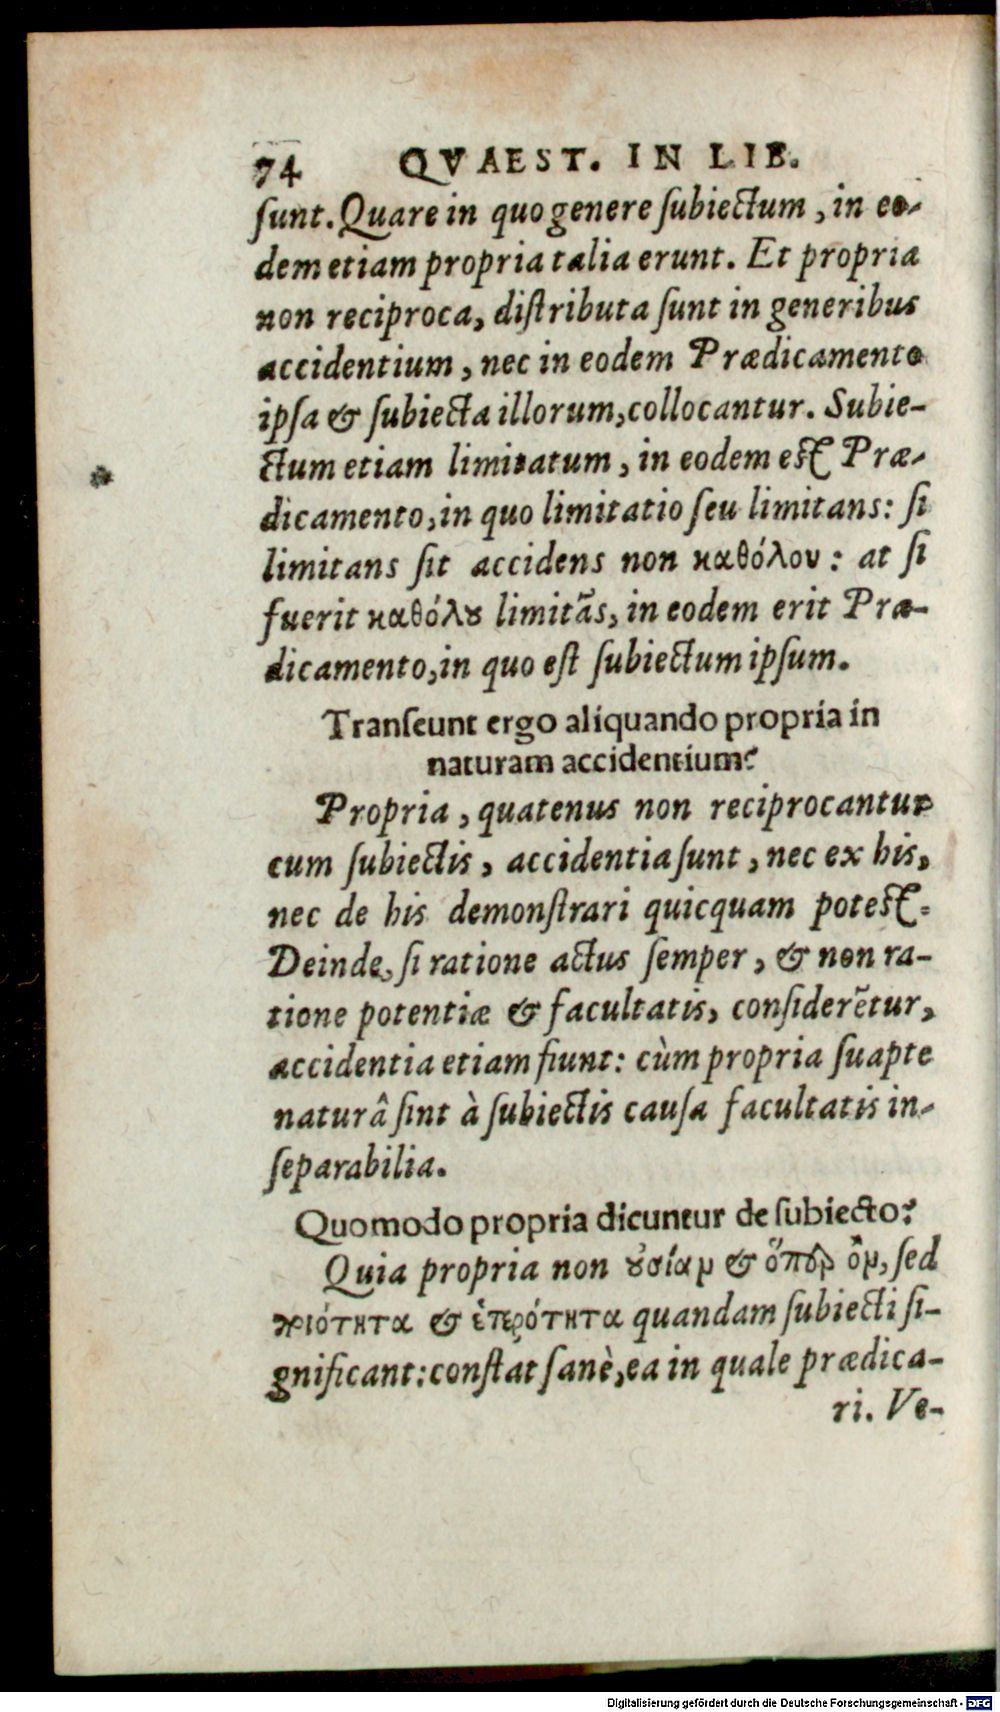 74 QVAEST. IN LIB.
ſunt. Quare in quo genere ſubiectum, in eo-
dem etiam propria talia erunt. Et propria
non reciproca, diſtributa ſunt in generibus
accidentium, nec in eodem Prædicamento
ipſa & ſubiecta illorum, collocantur. Subie-
ctum etiam limitatum, in eodem eſt Præ-
dicamento, in quo limitatio ſeu limitans: ſi
limitans ſit accidens non καθόλου: at ſi
fuerit καθόλȣ limitãs, in eodem erit Præ-
dicamento, in quo eſt ſubiectum ipſum.
Tranſeunt ergo aliquando propria in
naturam accidentium?
Propria, quatenus non reciprocantur
cum ſubiectis, accidentia ſunt, nec ex his,
nec de his demonſtrari quicquam poteſt.
Deinde, ſi ratione actus ſemper, & non ra-
tione potentiæ & facultatis, conſiderẽtur,
accidentia etiam fiunt: cùm propria ſuapte
naturâ ſint à ſubiectis cauſa facultatis in-
ſeparabilia.
Quomodo propria dicuntur de ſubiecto?
Quia propria non ȣσίαν & ὅπερ ὂν, ſed
ποιότητα & ἑτερότητα quandam ſubiecti ſi-
gnificant: conſtat ſanè, ea in quale prædica-
ri. Ve-
Digitalisierung gefördert durch die Deutsche Forschungsgemeinschaft - DFG